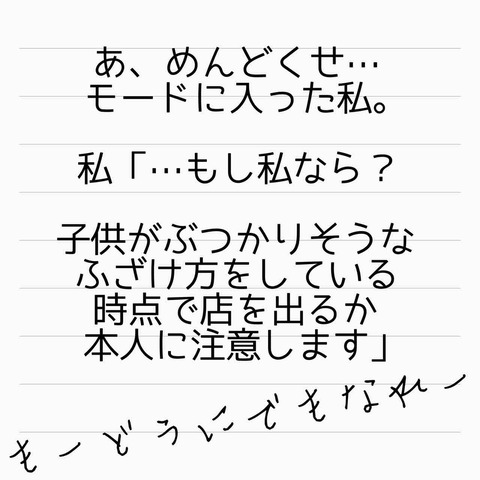 あ、めんどくせ…
モードに入った私。
私「…もし私なら？
子供がぶつかりそうな
ふざけ方をしている
時点で店を出るか
本人に注意します」
もーどうにでもなれー